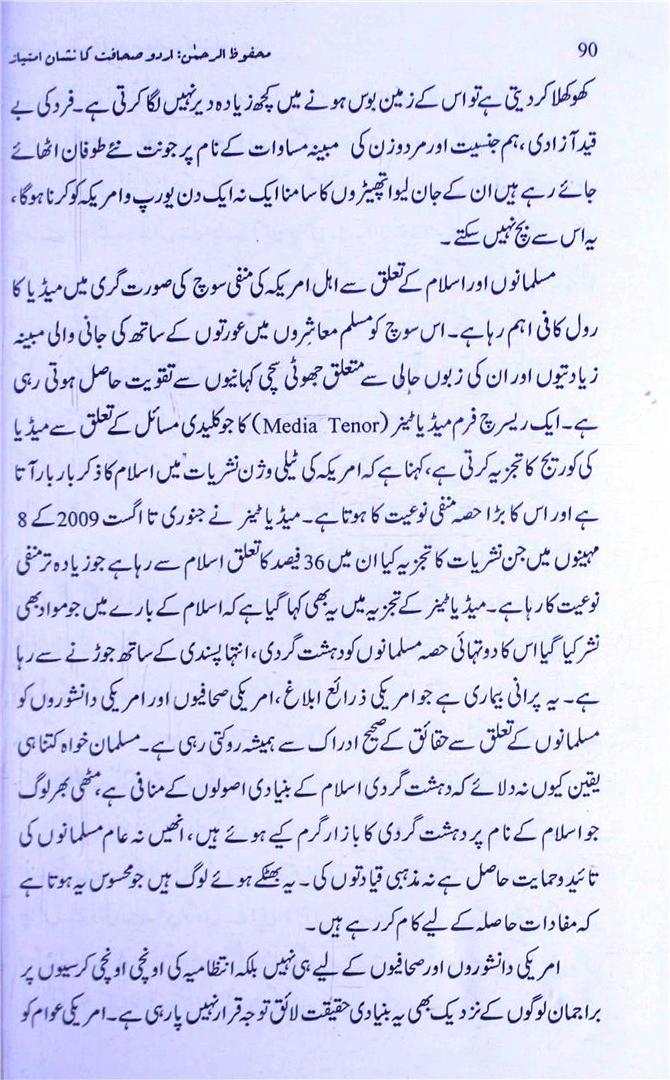 90
محفوظ الرحمٰن: اردو صحافت کا نشان امتیاز
کھوکھلا کر دیتی ہے تو اس کے زمین بوس ہونے میں کچھ زیادہ دیر نہیں لگا کرتی ہے۔ فرد کی بے
قید آزادی، ہم جنسیت اور مرد و زن کی مبینہ مساوات کے نام پر جو نت نئے طوفان اٹھائے
جائے رہے ہیں ان کے جان لیوا تھپیڑوں کا سامنا ایک نہ ایک دن یورپ و امریکہ کو کرنا ہوگا،
یہ اس سے بچ نہیں سکتے۔
مسلمانوں اور اسلام کے تعلق سے اہل امریکہ کی منفی سوچ کی صورت گری میں میڈیا کا
رول کافی اہم رہا ہے۔ اس سوچ کو مسلم معاشروں میں عورتوں کے ساتھ کی جانی والی مبینہ
زیادتیوں اور ان کی زبوں حالی سے متعلق جھوٹی سچی کہانیوں سے تقویت حاصل ہوتی رہی
ہے۔ ایک ریسرچ فرم میڈیا ٹینر (Media Tenor) کا جو کلیدی مسائل کے تعلق سے میڈیا
کی کوریج کا تجزیہ کرتی ہے، کہنا ہے کہ امریکہ کی ٹیلی وژن نشریات میں اسلام کا ذکر بار بار آتا
ہے اور اس کا بڑا حصہ منفی نوعیت کا ہوتا ہے۔ میڈیا ٹینر نے جنوری تا اگست 2009 کے 8
مہینوں میں جن نشریات کا تجزیہ کیا ان میں 36 فیصد کا تعلق اسلام سے رہا ہے جو زیادہ تر منفی
نوعیت کا رہا ہے۔ میڈیا ٹینر کے تجزیہ میں یہ بھی کہا گیا ہے کہ اسلام کے بارے میں جو مواد بھی
نشر کیا گیا اس کا دو تہائی حصہ مسلمانوں کو دہشت گردی، انتہا پسندی کے ساتھ جوڑنے سے رہا
ہے۔ یہ پرانی بیماری ہے جو امریکی ذرائع ابلاغ، امریکی صحافیوں اور امریکی دانشوروں کو
مسلمانوں کے تعلق سے حقائق کے صحیح ادراک سے ہمیشہ روکتی رہی ہے۔ مسلمان خواہ کتنا ہی
یقین کیوں نہ دلائے کہ دہشت گردی اسلام کے بنیادی اصولوں کے منافی ہے، مٹھی بھر لوگ
جو اسلام کے نام پر دہشت گردی کا بازار گرم کیے ہوئے ہیں، انھیں نہ عام مسلمانوں کی
تائید و حمایت حاصل ہے نہ مذہبی قیادتوں کی۔ یہ بھٹکے ہوئے لوگ ہیں جو محسوس یہ ہوتا ہے
کہ مفادات حاصلہ کے لیے کام کر رہے ہیں۔
امریکی دانشوروں اور صحافیوں کے لیے ہی نہیں بلکہ انتظامیہ کی اونچی اونچی کرسیوں پر
براجمان لوگوں کے نزدیک بھی یہ بنیادی حقیقت لائق توجہ قرار نہیں پا رہی ہے۔ امریکی عوام کو